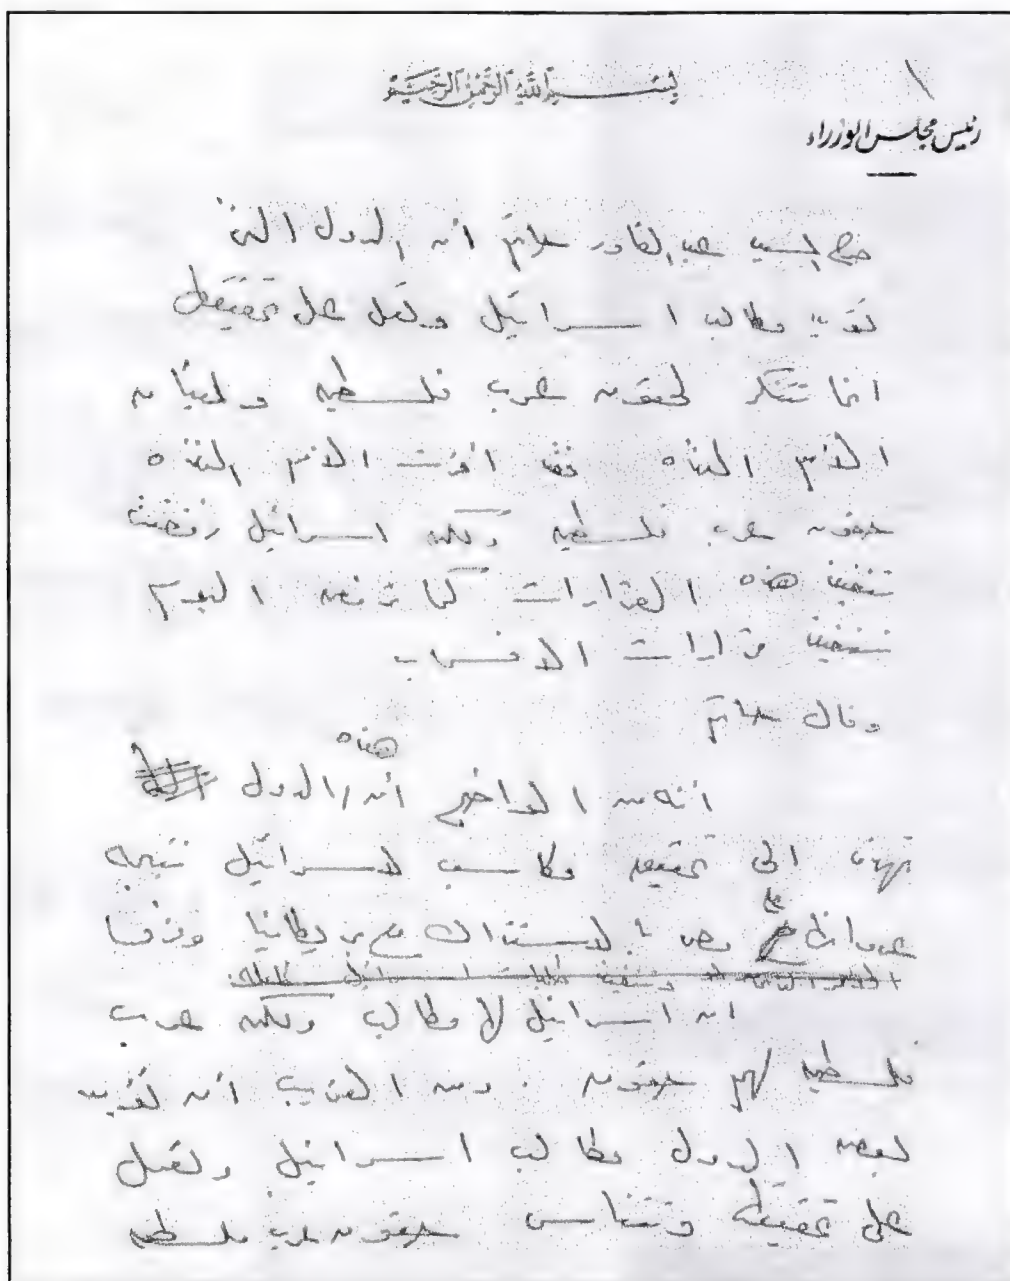 ١
بسم الله الرحمن الرحيم
رئيس مجلس الوزراء
صرح السيد عبد القادر حاتم أن الدول التى
تؤيد مطالب اسرائيل وتعمل على تحقيقها
انما تتنكر لحقوق عرب فلسطين ولميثاق
الأمم المتحدة فقد أقرت الأمم المتحدة
حقوق عرب فلسطين ولكن اسرائيل رفضت
تنفيذ هذه القرارات كما ترفض اليوم
تنفيذ قرارات الانسحاب
وقال حاتم
أنه من الواضح أن هذه الدول
تهدف الى تحقيق مكاسب لاسرائيل نتيجة
عدوانها على مصر بالاشتراك مع بريطانيا وفرنسا
ان اسرائيل لا مطالب ولكن عرب
فلسطين لهم حقوق . ومن الغريب أن تؤيد
بعض الدول مطالب اسرائيل وتعمل
على تحقيقها وتتناسى حقوق عرب فلسطين